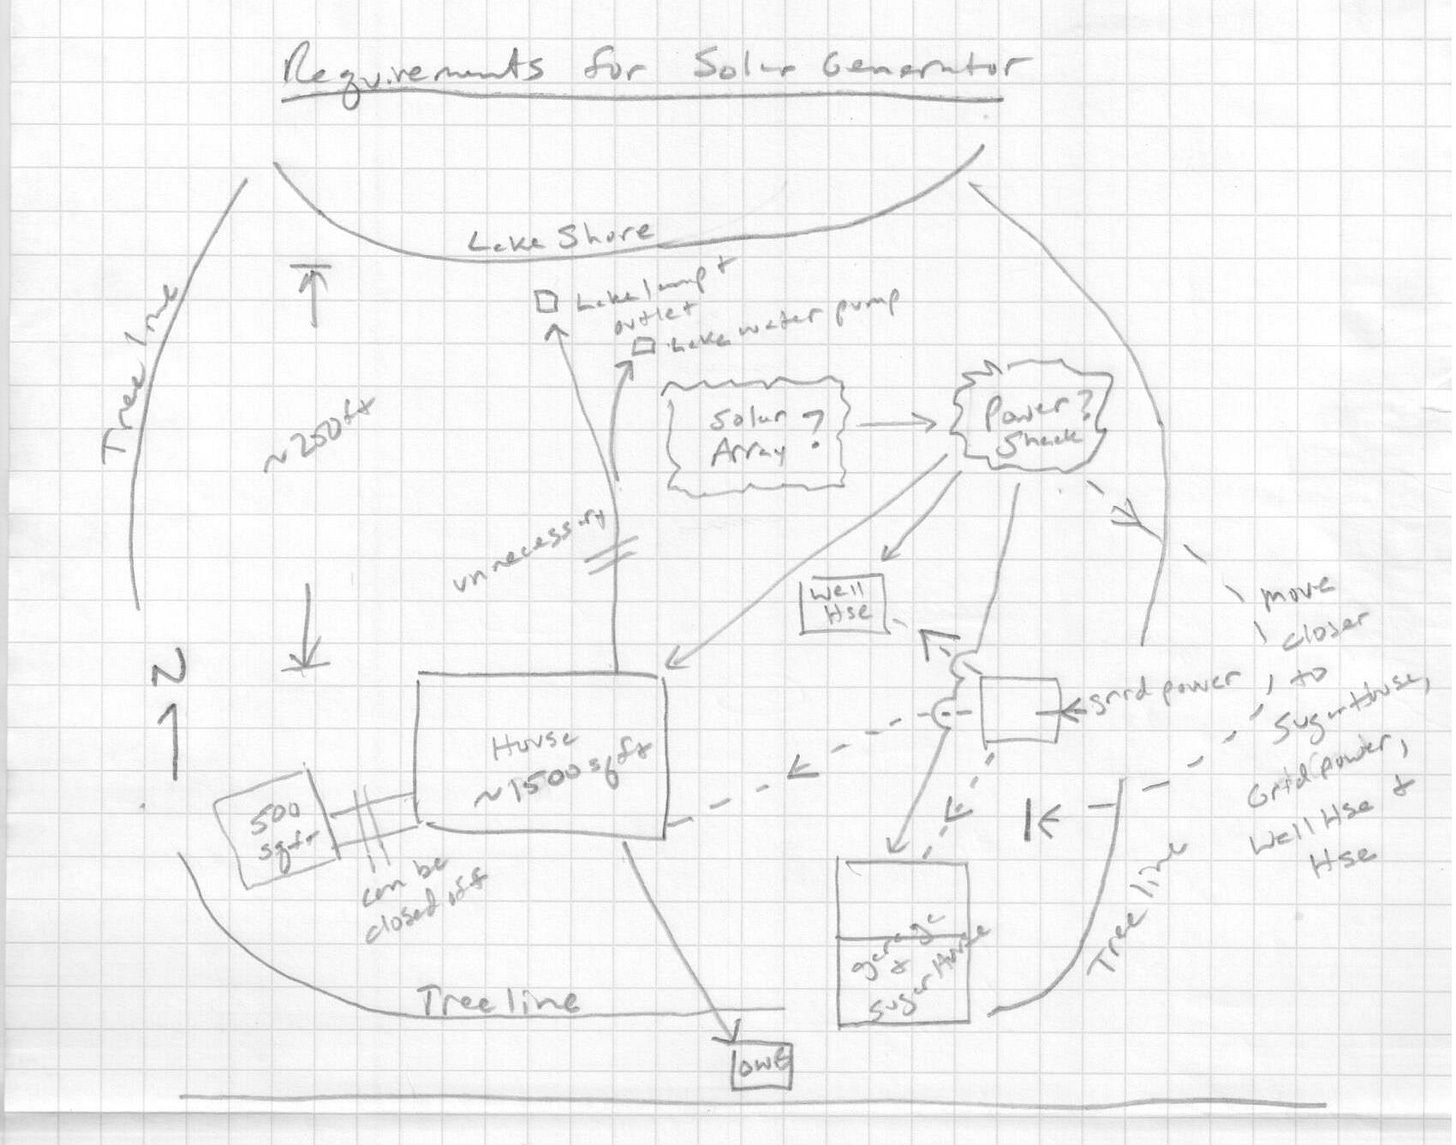 Requirements for Solar Generator
Lake Shore
Tree line
Lake lamp +
outlet
Lake water pump
~250ft
Solar
Array ?
Power ?
Shack
unnecessary
Well
Hse
move
closer
to
Sugar House,
Grid power,
Well Hse +
Hse
grid power
N
House
~1500 sq ft
500
sqft
can be
closed off
garage
+
sugar House
Tree line
Tree line